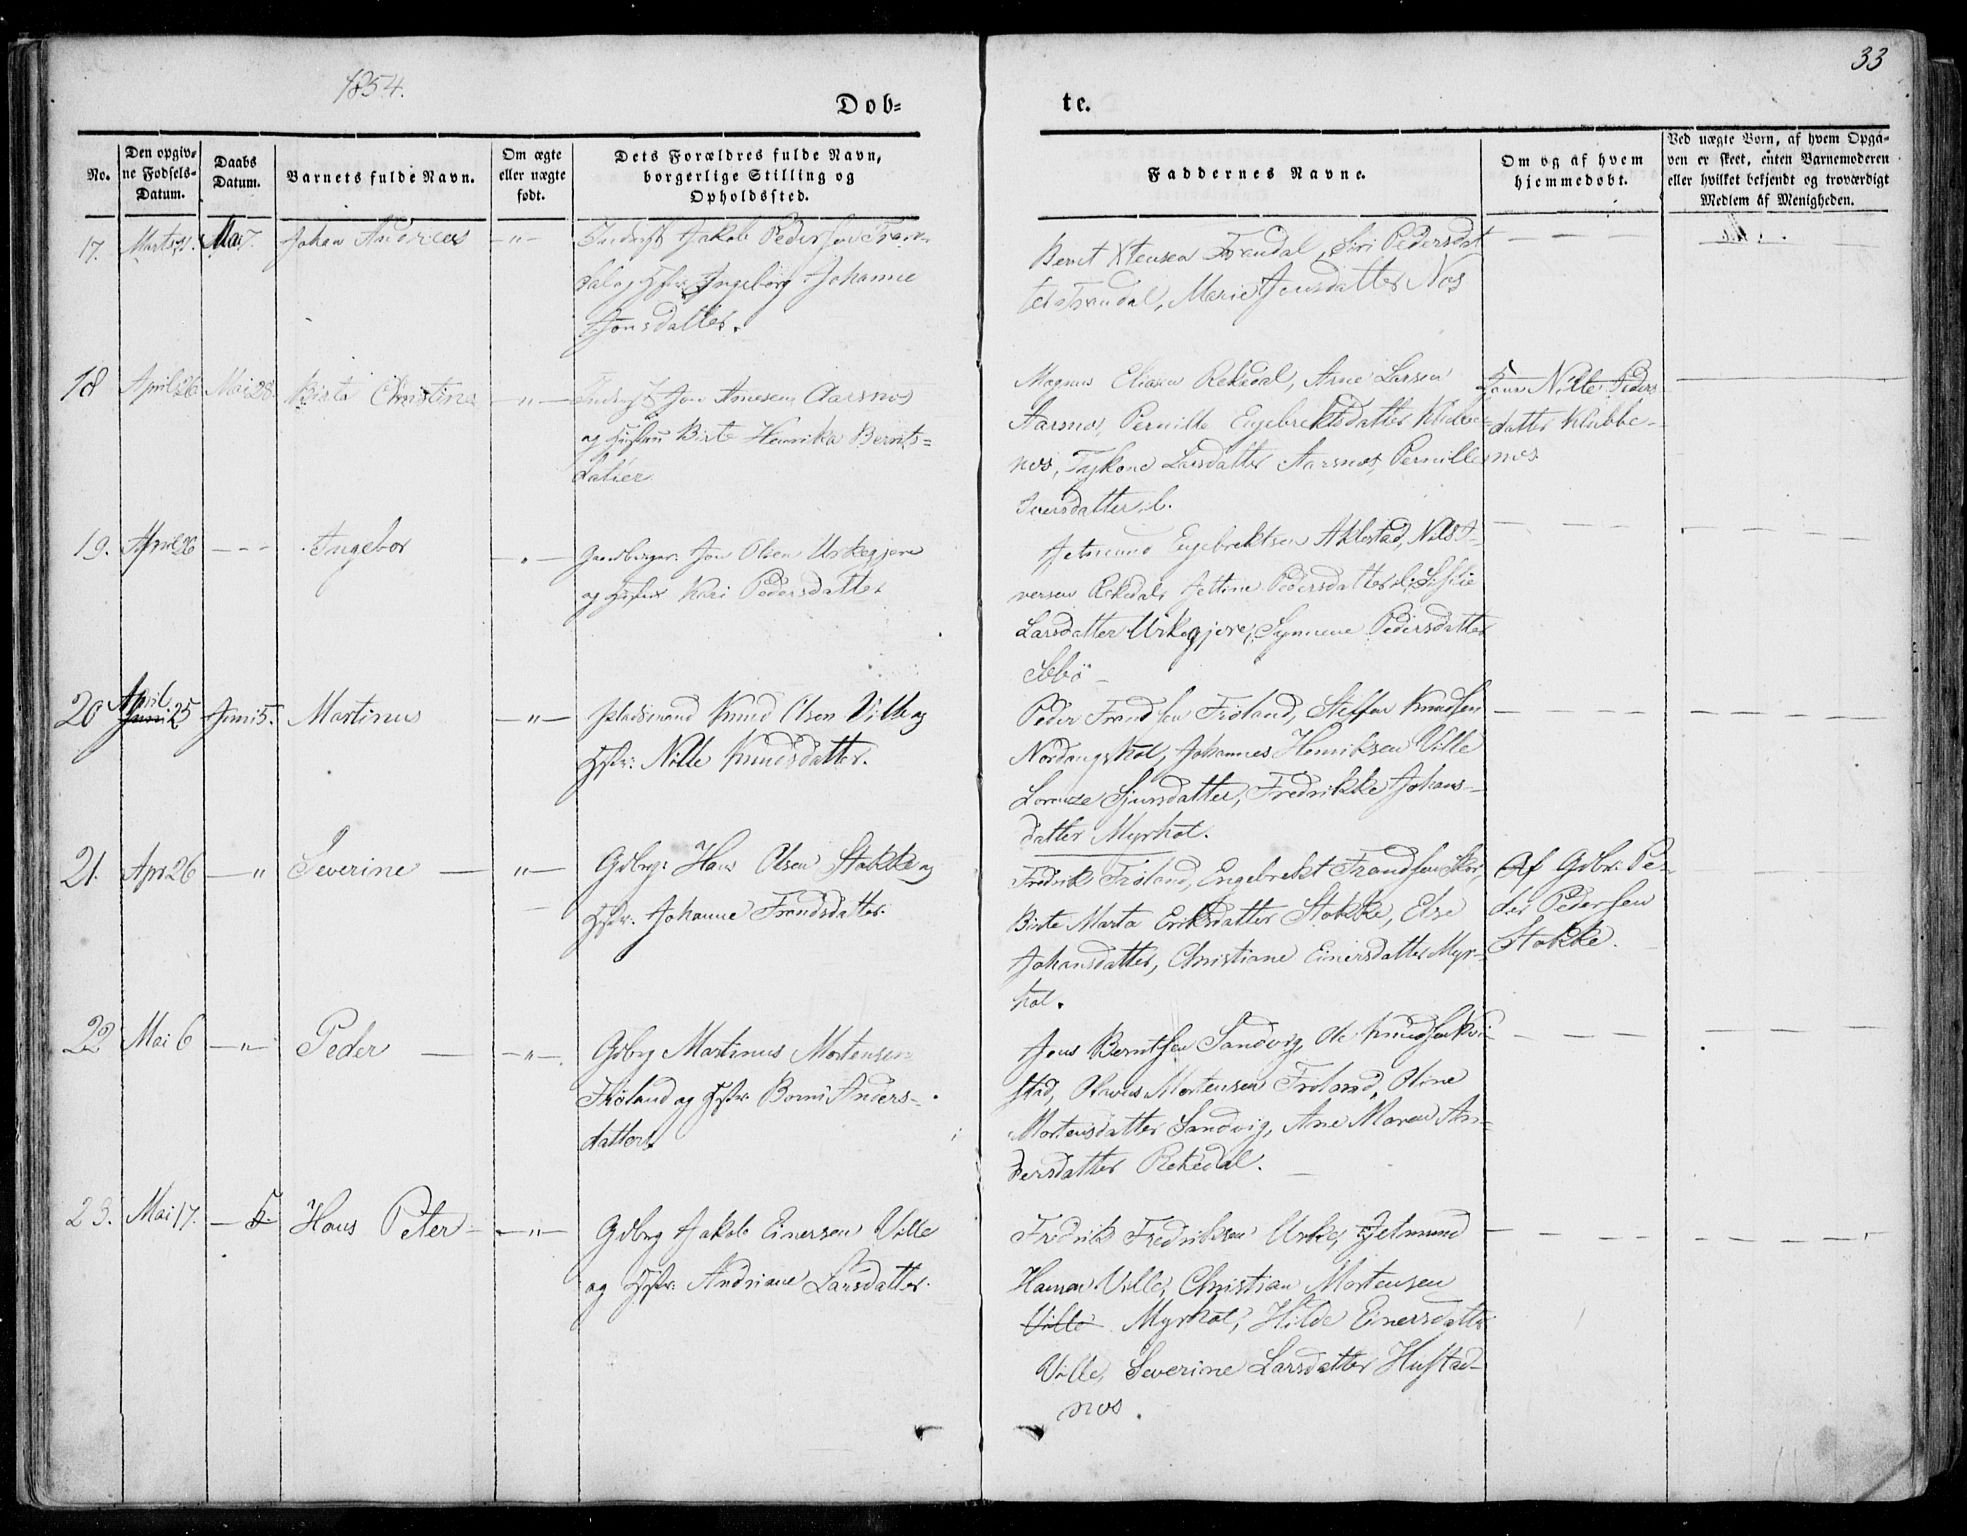 1854.
33
Døb=
te.
No.
Den opgiv=
ne Fødsels=
Datum.
Daabs
Datum.
Barnets fulde Navn.
Om ægte
eller uægte
født.
Dets Forældres fulde Navn,
borgerlige Stilling og
Opholdssted.
Faddernes Navne.
Om og af hvem
hjemmedøbt.
Ved uægte Børn, af hvem Opgi-
ven er skeet, enten Barnemoderen
eller hvilket bekjendt og troværdigt
Medlem af Menigheden.
17. Marts Mai 7. Johan Andreas —"—
Jakob Pedersen Tran
dal og Hstr: Ingeborg Johanne
Jonsdatter.
Bernt Xtensen Trandal, Siri Pedersdat
ter Trandal, Marie Jonsdatter Nos
18 April 26 Mai 28 Birte Christine —"—
Jon Arnesen Aarsnos
og Hustru Birte Henrika Bernts=
datter
Magnus Eliasen Rekedal, Arne Larsen
Aarsnos, Pernille Engebrektsdatter Klubbe-
nos, Larsdatter Aarsnos, Pernille
Iversdatter ib.
Nille Peders
datter Klubbe-
nos
19. April 26 — — — Ingebor —"—
Gaardbruger: Jon Olsen Urkegjere
og Hustru Kari Pedersdatter
Jetmund Engebrektsen Aklestad, Nils I-
versen Rekedal, Jettine Pedersdatter ib,
Larsdatter Urkegjere, Synneve Pedersdatter
Sebö —
20 April Juni 25 Juni 5. Martinus —"—
Pladsmand Knud Olsen Ville og
Hstr: Nille Knudsdatter.
Peder Trandsen Fröland, Steffen Knudsen
Nordangshol, Johannes Henriksen Ville
Lorentze Sjursdatter, Fredrikke Johans-
datter Myrhol.
21. Apr 26 — " Severine — " —
Gdbrg: Hans Olsen Stokke og
Hstr: Johanne Trandsdatter.
Fredrik Fröland, Engebrekt Trandsen
Birte Marta Eriksdatter Stokke, Else
Johansdatter, Christiane Einersdatter Myr-
hol.
Af Gdbr: Pe-
der Pedersen
Stokke.
22 Mai 6 —"— Peder — —"—
Gdbrg Martinus Mortensen
Fröland og Hstr: Anders-
datter.
Jens Berntsen Sandvig, Ole Knudsen Kvi-
stad, Mortensen Fröland, Oline
Mortensdatter Sandvig, Ane Maren An-
dersdatter Rekedal.
23. Mai 17. — Hans Peter —"—
Gdbrg Jakob Einersen Ville
og Hstr: Andriane Larsdatter.
Fredrik Fredriksen Urke, Jetmund
Ville, Christian Mortensen
Ville Myrhol, Hilde Einersdatter
Ville, Severine Larsdatter Hustad-
nos.